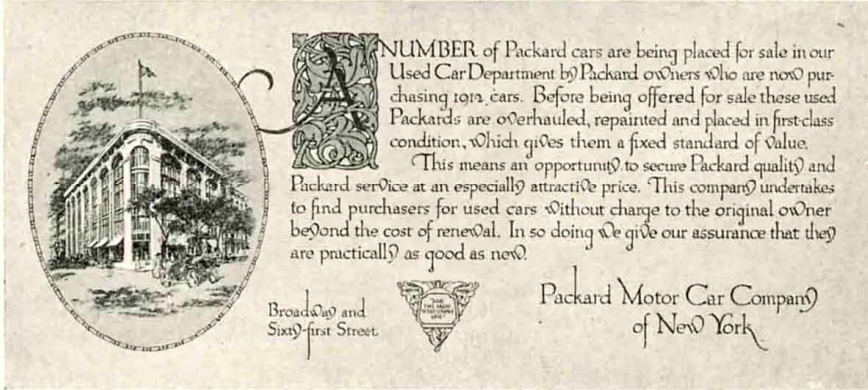 A NUMBER of Packard cars are being placed for sale in our
Used Car Department by Packard owners who are now pur-
chasing 1912 cars. Before being offered for sale these used
Packards are overhauled, repainted and placed in first-class
condition, which gives them a fixed standard of value.
This means an opportunity to secure Packard quality and
Packard service at an especially attractive price. This company undertakes
to find purchasers for used cars without charge to the original owner
beyond the cost of renewal. In so doing we give our assurance that they
are practically as good as new.
Broadway and
Sixty-first Street
ASK
THE MAN
WHO OWNS
ONE
Packard Motor Car Company
of New York